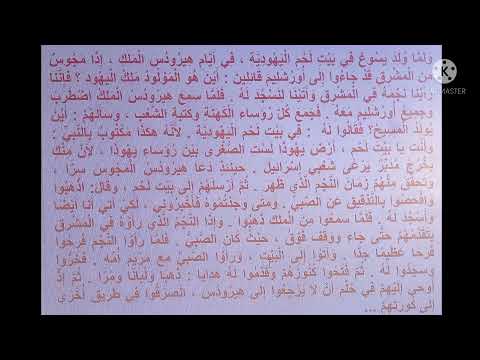 وَلَمَّا وُلِدَ يَسُوعُ فِي بَيْتِ لَحْمِ الْيَهُودِيَّةِ ، فِي أَيَّامِ هِيرُودُسَ الْمَلِكِ ، إِذَا مَجُوسٌ
مِنَ الْمَشْرِقِ قَدْ جَاءُوا إِلَى أُورُشَلِيمَ قَائِلِينَ : أَيْنَ هُوَ الْمَوْلُودُ مَلِكُ الْيَهُودِ ؟ فَإِنَّنَا
رَأَيْنَا نَجْمَهُ فِي الْمَشْرِقِ وَأَتَيْنَا لِنَسْجُدَ لَهُ . فَلَمَّا سَمِعَ هِيرُودُسُ الْمَلِكُ اضْطَرَبَ
وَجَمِيعُ أُورُشَلِيمَ مَعَهُ . فَجَمَعَ كُلَّ رُؤَسَاءِ الْكَهَنَةِ وَكَتَبَةِ الشَّعْبِ ، وَسَأَلَهُمْ : أَيْنَ
يُولَدُ الْمَسِيحُ؟ فَقَالُوا لَهُ : فِي بَيْتِ لَحْمِ الْيَهُودِيَّةِ . لِأَنَّهُ هكَذَا مَكْتُوبٌ بِالنَّبِيِّ :
وَأَنْتِ يَا بَيْتَ لَحْمٍ ، أَرْضَ يَهُوذَا لَسْتِ الصُّغْرَى بَيْنَ رُؤَسَاءِ يَهُوذَا ، لِأَنْ مِنْكِ
يَخْرُجُ مُدَبِّرٌ يَرْعَى شَعْبِي إِسْرَائِيلَ . حِينَئِذٍ دَعَا هِيرُودُسُ الْمَجُوسَ سِرًّا ،
وَتَحَقَّقَ مِنْهُمْ زَمَانَ النَّجْمِ الَّذِي ظَهَرَ . ثُمَّ أَرْسَلَهُمْ إِلَى بَيْتِ لَحْمٍ ، وَقَالَ: اذْهَبُوا
وَافْحَصُوا بِالتَّدْقِيقِ عَنِ الصَّبِيِّ . وَمَتَى وَجَدْتُمُوهُ فَأَخْبِرُونِي ، لِكَيْ آتِيَ أَنَا أَيْضًا
وَأَسْجُدَ لَهُ . فَلَمَّا سَمِعُوا مِنَ الْمَلِكِ ذَهَبُوا . وَإِذَا النَّجْمُ الَّذِي رَأَوْهُ فِي الْمَشْرِقِ
يَتَقَدَّمُهُمْ حَتَّى جَاءَ وَوَقَفَ فَوْقُ ، حَيْثُ كَانَ الصَّبِيُّ . فَلَمَّا رَأَوُا النَّجْمَ فَرِحُوا
فَرَحًا عَظِيمًا جِدًّا . وَأَتَوْا إِلَى الْبَيْتِ ، وَرَأَوُا الصَّبِيَّ مَعَ مَرْيَمَ أُمِّهِ . فَخَرُّوا
وَسَجَدُوا لَهُ . ثُمَّ فَتَحُوا كُنُوزَهُمْ وَقَدَّمُوا لَهُ هَدَايَا : ذَهَبًا وَلُبَانًا وَمُرًّا . ثُمَّ إِذْ
أُوحِيَ إِلَيْهِمْ فِي حُلْمٍ أَنْ لَا يَرْجِعُوا إِلَى هِيرُودُسَ ، انْصَرَفُوا فِي طَرِيقٍ أُخْرَى
إِلَى كُورَتِهِمْ ...
K
MASTER